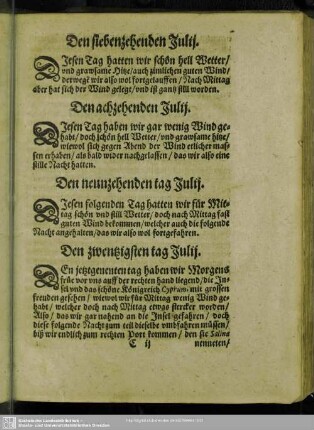 Den siebenzehenden Julij.
DJesen Tag hatten wir schön hell Wetter/
vnd grawsame Hitze/auch zimlichen guten Wind/
derwegē wir also wol fortgelauffen / Nach Mittag
aber hat sich der Wind gelegt/vnd ist gantz still worden.
Den achzehenden Julij.
DJesen Tag haben wir gar wenig Wind ge-
habt/ doch schön hell Wetter/vnd grawsame hitze/
wiewol sich gegen Abend der Wind etlicher mas-
sen erhaben/als bald wider nachgelassen / das wir also eine
stille Nacht hatten.
Den neunzehenden tag Julij.
DJesen folgenden Tag hatten wir für Mit-
tag schön vnd still Wetter/ doch nach Mittag fast
guten Wind bekommen/welcher auch die folgende
Nacht angehalten/das wir also wol fortgefahren.
Den zwentzigsten tag Julij.
DEn jetztgenenten tag haben wir Morgens
früe vor vns auff der rechten hand liegend/die In-
sel vnd das schöne Königreich Cyprum, mit grossen
freuden gesehen / wiewol wir für Mittag wenig Wind ge-
habt / welcher doch nach Mittag etwas stercker worden/
Also / das wir gar nahend an die Insel gefahren / doch
diese folgende Nacht zum teil dieselbe vmbfahren müssen/
biß wir endlich zum rechten Port kommen / den sie Salina
C ij
nenneten/